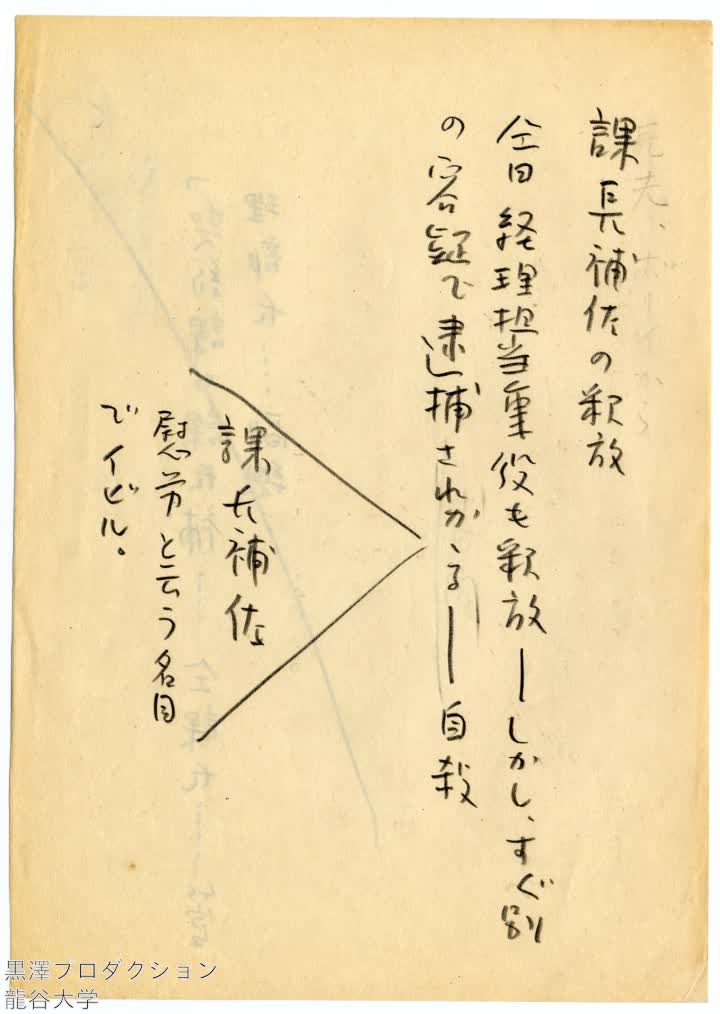 課長補佐の釈放
今日経理担当重役も釈放―しかし、すぐ別
の容疑で逮捕されかゝる―自殺
課長補佐
慰労と云う名目
でイビル。
黒澤プロダクション
龍谷大学